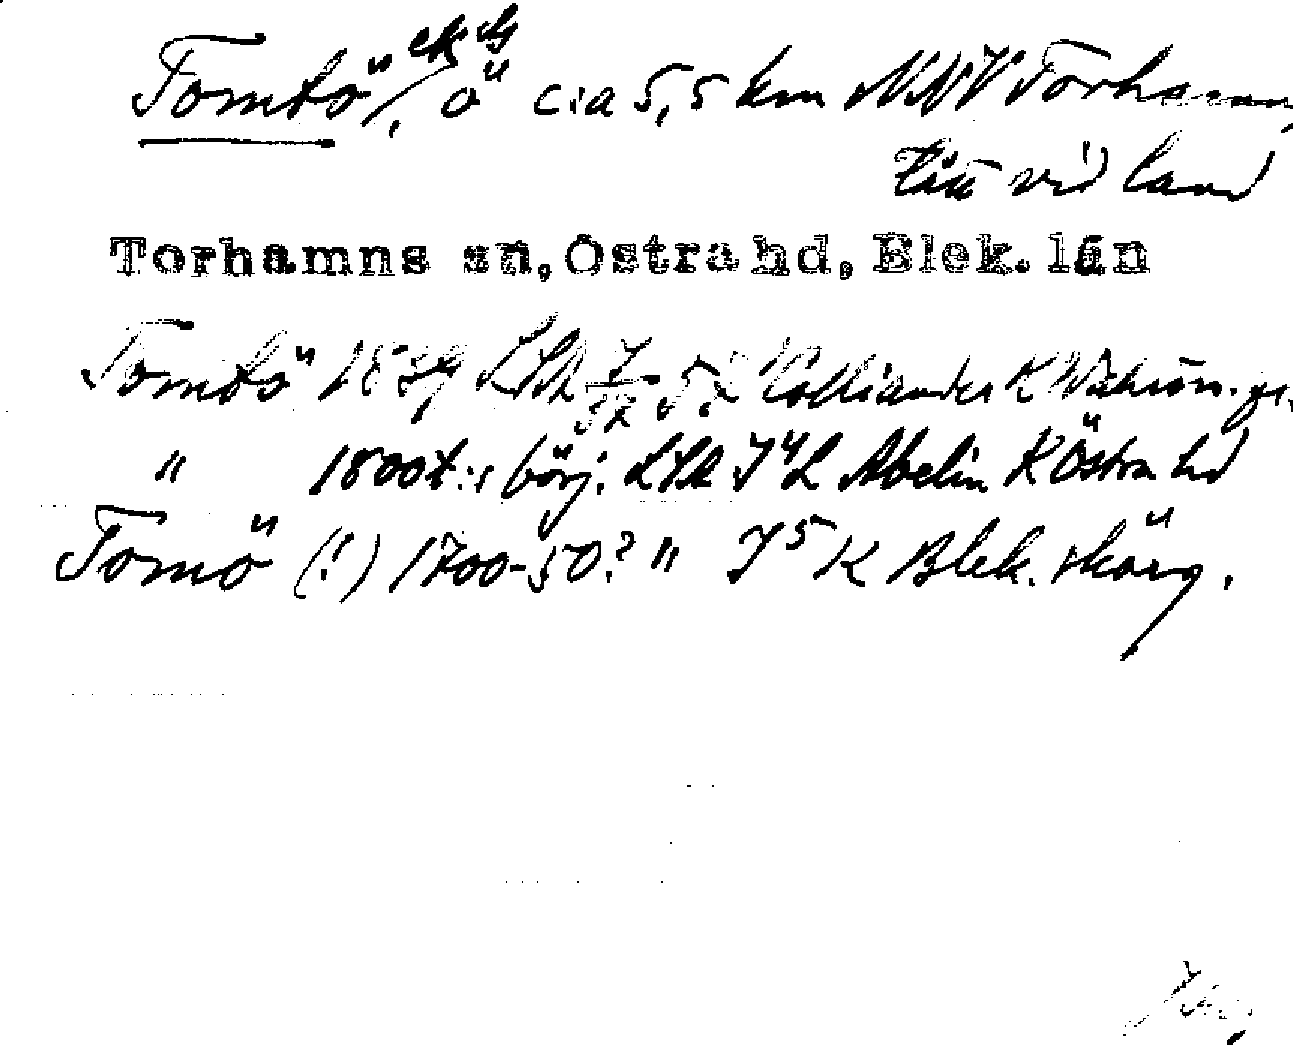 Tomtö, ek bl
ö cia 5,5 km NNV Torhamn,
tätt vid land
Torhamns sn, Östra hd, Blek. län
Tomtö 1839 LSA Colliander K
" 1800t:s börj. LSA J4L Abelin K Östra hd
Tomö (!) 1700-50? " J5 K Blek. skärg.